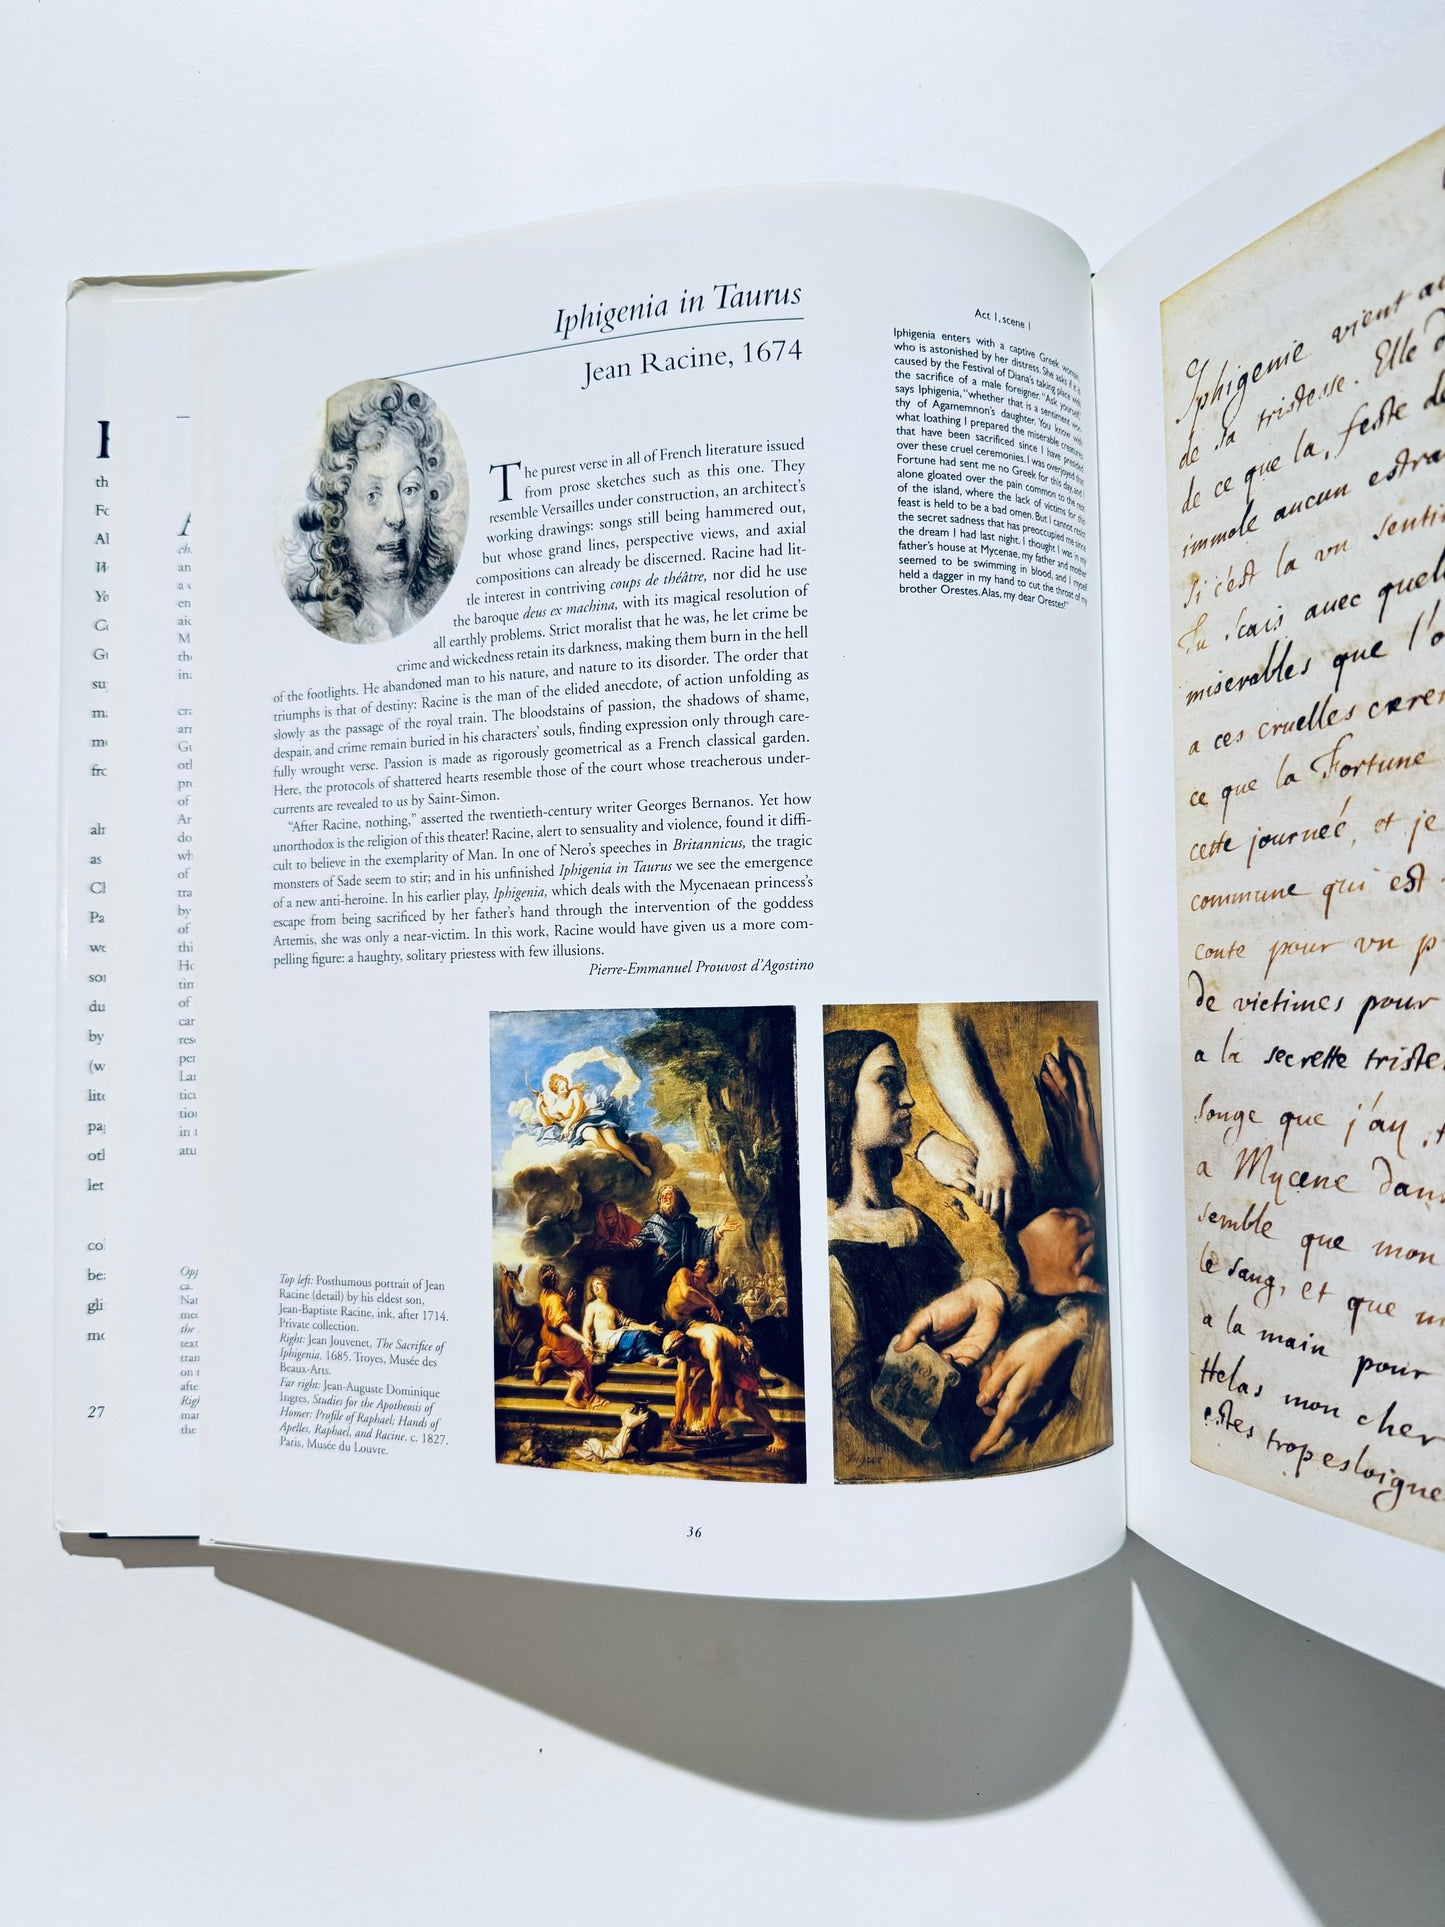 Iphigenia in Taurus
Jean Racine, 1674
The purest verse in all of French literature issued
from prose sketches such as this one. They
resemble Versailles under construction, an architect's
working drawings: songs still being hammered out,
but whose grand lines, perspective views, and axial
compositions can already be discerned. Racine had lit-
tle interest in contriving coups de théâtre, nor did he use
the baroque deus ex machina, with its magical resolution of
all earthly problems. Strict moralist that he was, he let crime be
crime and wickedness retain its darkness, making them burn in the hell
of the footlights. He abandoned man to his nature, and nature to its disorder. The order that
triumphs is that of destiny: Racine is the man of the elided anecdote, of action unfolding as
slowly as the passage of the royal train. The bloodstains of passion, the shadows of shame,
despair, and crime remain buried in his characters' souls, finding expression only through care-
fully wrought verse. Passion is made as rigorously geometrical as a French classical garden.
Here, the protocols of shattered hearts resemble those of the court whose treacherous under-
currents are revealed to us by Saint-Simon.
"After Racine, nothing," asserted the twentieth-century writer Georges Bernanos. Yet how
unorthodox is the religion of this theater! Racine, alert to sensuality and violence, found it diffi-
cult to believe in the exemplarity of Man. In one of Nero's speeches in Britannicus, the tragic
monsters of Sade seem to stir; and in his unfinished Iphigenia in Taurus we see the emergence
of a new anti-heroine. In his earlier play, Iphigenia, which deals with the Mycenaean princess's
escape from being sacrificed by her father's hand through the intervention of the goddess
Artemis, she was only a near-victim. In this work, Racine would have given us a more com-
pelling figure: a haughty, solitary priestess with few illusions.
Pierre-Emmanuel Prouvost d'Agostino
Act 1, scene 1
Iphigenia enters with a captive Greek woman,
who is astonished by her distress. She asks if it is
caused by the Festival of Diana's taking place with
the sacrifice of a male foreigner. "Ask yourself,"
says Iphigenia, "whether that is a sentiment wor-
thy of Agamemnon's daughter. You know with
what loathing I prepared the miserable creatures
that have been sacrificed since I have presided
over these cruel ceremonies. I was overjoyed that
Fortune had sent me no Greek for this day, and I
alone gloated over the pain common to the rest
of the island, where the lack of victims for this
feast is held to be a bad omen. But I cannot resist
the secret sadness that has preoccupied me since
the dream I had last night. I thought I was in my
father's house at Mycenae, my father and mother
seemed to be swimming in blood, and I myself
held a dagger in my hand to cut the throat of my
brother Orestes. Alas, my dear Orestes!"
Top left: Posthumous portrait of Jean
Racine (detail) by his eldest son,
Jean-Baptiste Racine, ink, after 1714.
Private collection.
Right: Jean Jouvenet, The Sacrifice of
Iphigenia, 1685. Troyes, Musée des
Beaux-Arts.
Far right: Jean-Auguste Dominique
Ingres, Studies for the Apotheosis of
Homer: Profile of Raphael; Hands of
Apelles, Raphael, and Racine. c. 1827.
Paris, Musée du Louvre.
36
27
Iphigenie vient
de sa tristesse. Elle
de ce que la feste de
immole aucun
si c'est la vn
Tu scais auec
miserables que
a ces cruelles
ce que la Fortune
cette journeé, et je
commune qui est
conte pour vn
de victimes pour
a la secrette
songe que j'ay
a Mycene dans
semble que mon
le sang, et que
a la main pour
Helas mon cher